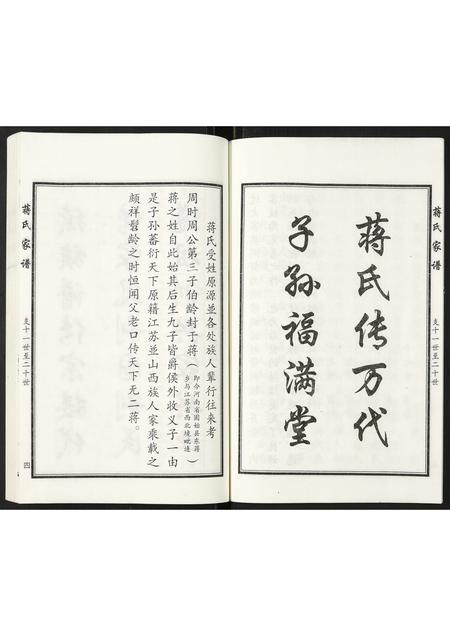 蒋氏家谱
支十一世至二十世
蒋氏传万代
子孙福满堂
蒋氏受姓原源並各处族人辈行往来考
周时周公第三子伯龄封于蒋（即今河南省固始县东蒋乡与江苏省西北境毗连）
蒋之姓自此始其后生九子皆爵侯外收义子一由
是子孙蕃衍天下原籍江苏並山西族人家乘载之
颇祥髫龄之时恒闻父老口传天下无二蒋。
蒋氏家谱
支十一世至二十世
四